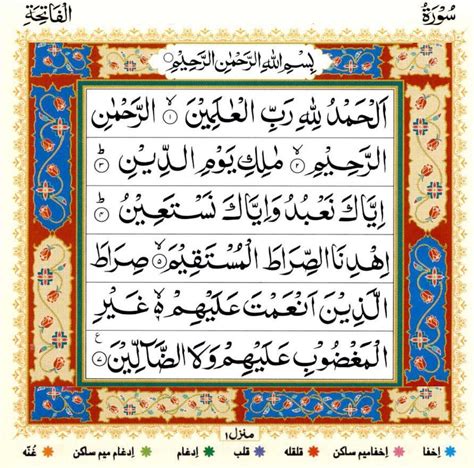 سُوْرَةُ الْفَاتِحَةِ
بِسْمِ اللّٰهِ الرَّحْمٰنِ الرَّحِيْمِ
اَلْحَمْدُ لِلّٰهِ رَبِّ الْعٰلَمِيْنَ ۙ﴿۱﴾ الرَّحْمٰنِ
الرَّحِيْمِ ۙ﴿۲﴾ مٰلِكِ يَوْمِ الدِّيْنِ ؕ﴿۳﴾
اِيَّاكَ نَعْبُدُ وَاِيَّاكَ نَسْتَعِيْنُ ؕ﴿۴﴾
اِهْدِنَا الصِّرَاطَ الْمُسْتَقِيْمَ ۙ﴿۵﴾ صِرَاطَ
الَّذِيْنَ اَنْعَمْتَ عَلَيْهِمْ ۙ۬ۦ غَيْرِ
الْمَغْضُوْبِ عَلَيْهِمْ وَلَا الضَّآلِّيْنَ ﴿۷﴾ ع
منزل ۱
اخفا اخفامیم ساکن قلقله قلب ادغام ادغام میم ساکن غُنّه